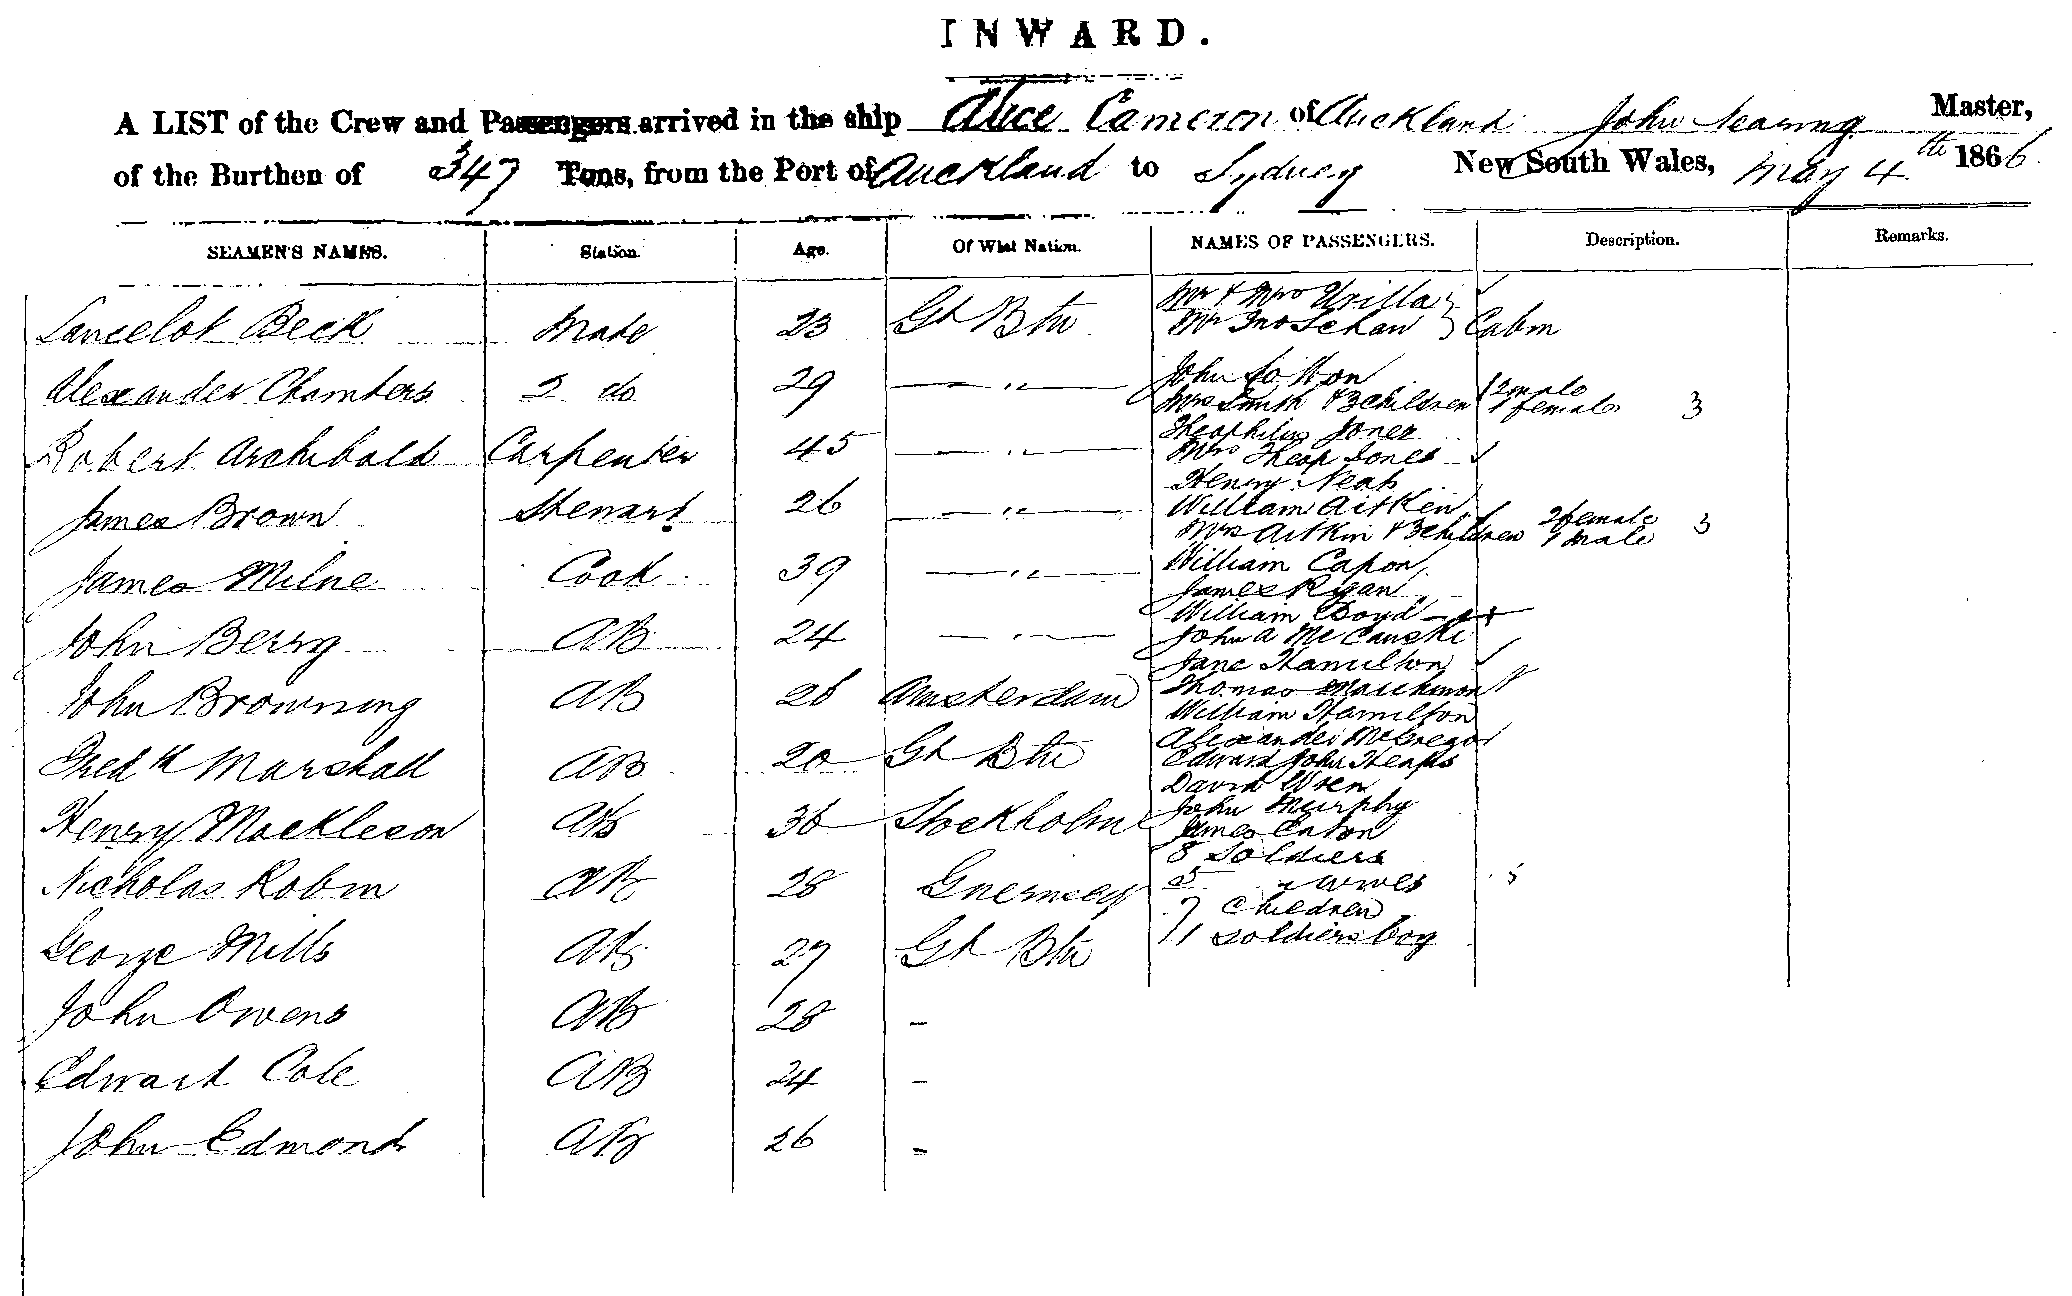 INWARD.
A LIST of the Crew and Passengers arrived in the ship Alice Cameron of Auckland John Nearing Master,
of the Burthen of 347 Tons, from the Port of Auckland to Sydney New South Wales, May 4th 1866.
SEAMEN'S NAMES. Station. Age. Of What Nation. NAMES OF PASSENGERS. Description. Remarks.
Lancelot Beck Mate 23 Gt Btn
Alexander Chambers 2 do 29 — " —
Robert Archibald Carpenter 45 — " —
James Brown Steward 26 — " —
James Milne Cook 39 — " —
John Berry AB 24 — " —
John Browning AB 26 Amsterdam
Fredk Marshall AB 20 Gt Btn
Henry Mackleson AB 36 Stockholm
Nicholas Robin AB 28 Guernsey
George Mills AB 27 Gt Btn
John Owens AB 28 -
Edward Cole AB 24 -
John Edmond AB 26 -
Mr & Mrs
Mr Jno Cabin
John
Mrs Smith & 3 children 2 male
1 female 3
Theophilus Jones
Mrs Theop Jones
Henry
William Aitken
Mrs Aitkin & 3 children 2 female
1 male 3
William Capon
James Ryan
William Boyd
John A
Jane Hamilton
Thomas
William Hamilton
Alexander McGregor
Edward John Heaps
David Wren
John Murphy
James Eaton
8 Soldiers
5 " wives 5
7 children
1 soldiers boy